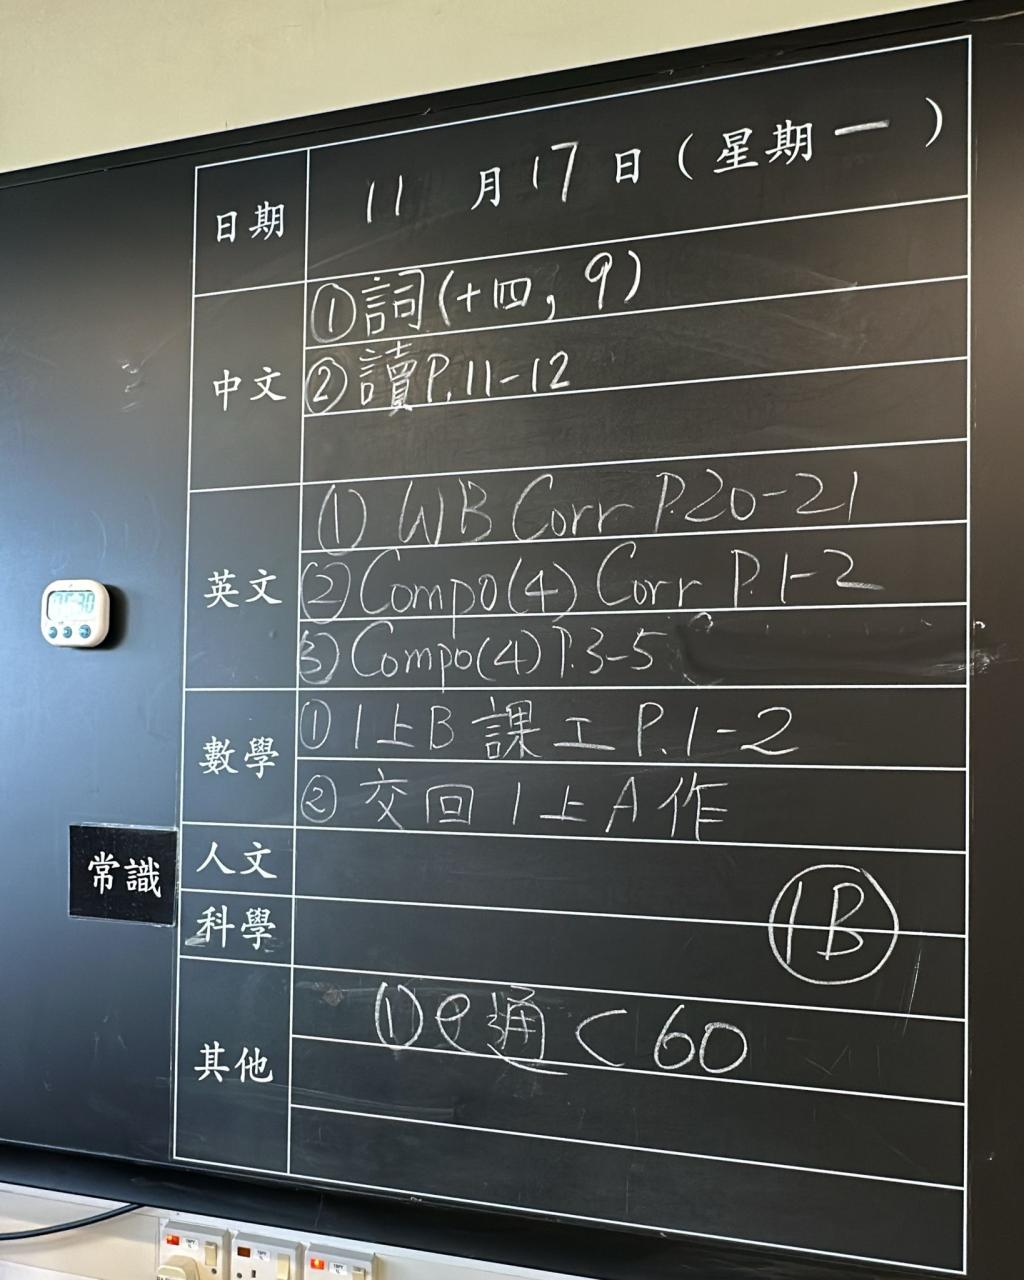 日期 11 月 17 日 ( 星期 一 )
中文 ① 詞 (十四, 9)
② 讀 P.11-12
英文 (1) WB Corr P.20-21
(2) Compo(4) Corr P.1-2
(3) Compo(4) P.3-5
數學 ① 1上B 課工 P.1-2
② 交回 1上A 作
人文
常識
科學
1B
其他 (1) e通 < 60